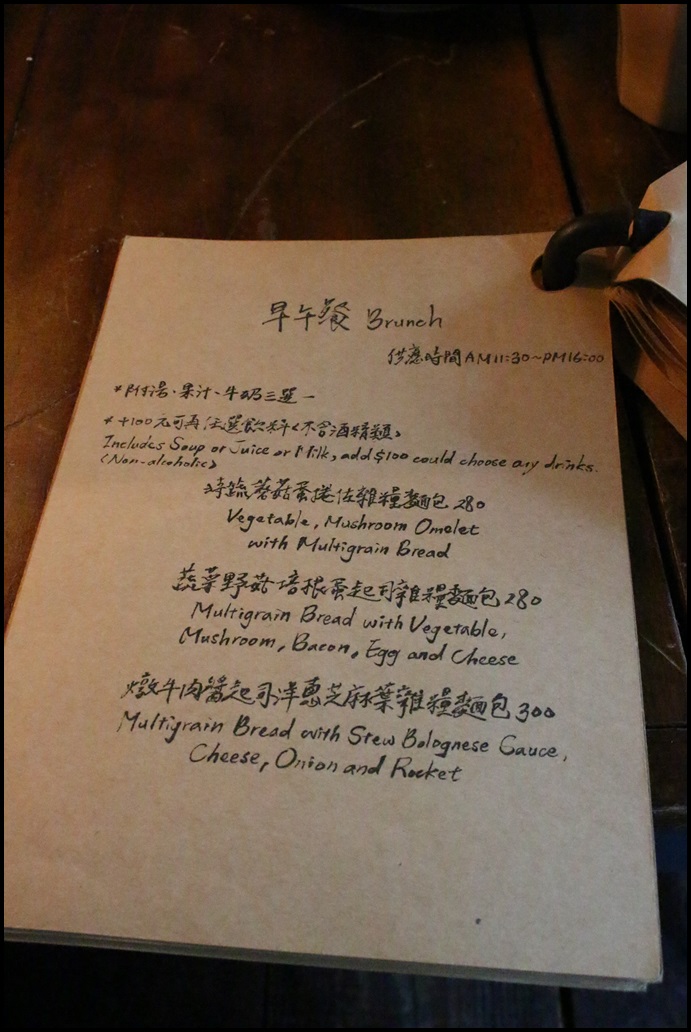 早午餐 Brunch
供應時間AM11:30~PM16:00
*附湯、果汁、牛奶三選一
*+100元可再任選飲料<不含酒精類>
Includes Soup or Juice or Milk, add $100 could choose any drinks.
<Non-alcoholic>
時蔬蘑菇蛋捲佐雜糧麵包 280
Vegetable, Mushroom Omelet
with Multigrain Bread
蔬菜野菇培根蛋起司雜糧麵包 280
Multigrain Bread with Vegetable,
Mushroom, Bacon, Egg and Cheese
燉牛肉醬起司洋蔥芝麻葉雜糧麵包 300
Multigrain Bread with Stew Bolognese Sauce,
Cheese, Onion and Rocket